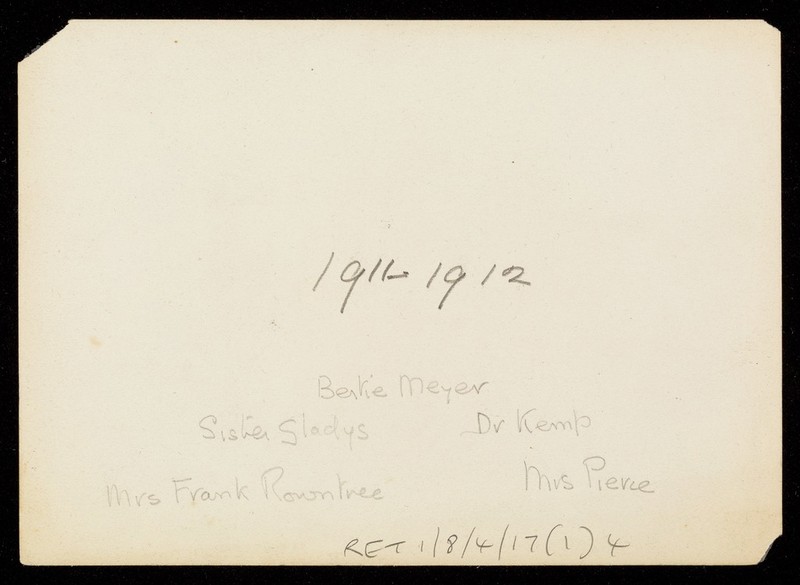 1911-1912
Bertie Meyer
Sister Gladys Dr Kemp
Mrs Frank Rowntree Mrs Pierce
RET 1/8/4/17(1)4